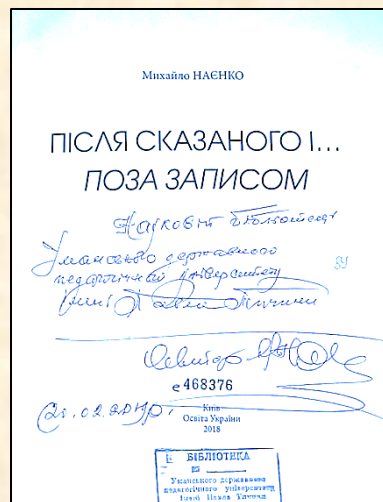 Михайло НАЄНКО
ПІСЛЯ СКАЗАНОГО І...
ПОЗА ЗАПИСОМ
Науковій бібліотеці
Уманського державного
педагогічного університету
імені Павла Тичини
е468376
Київ
Освіта України
2018
БІБЛІОТЕКА
Уманського державного
педагогічного університету
імені Павла Тичини